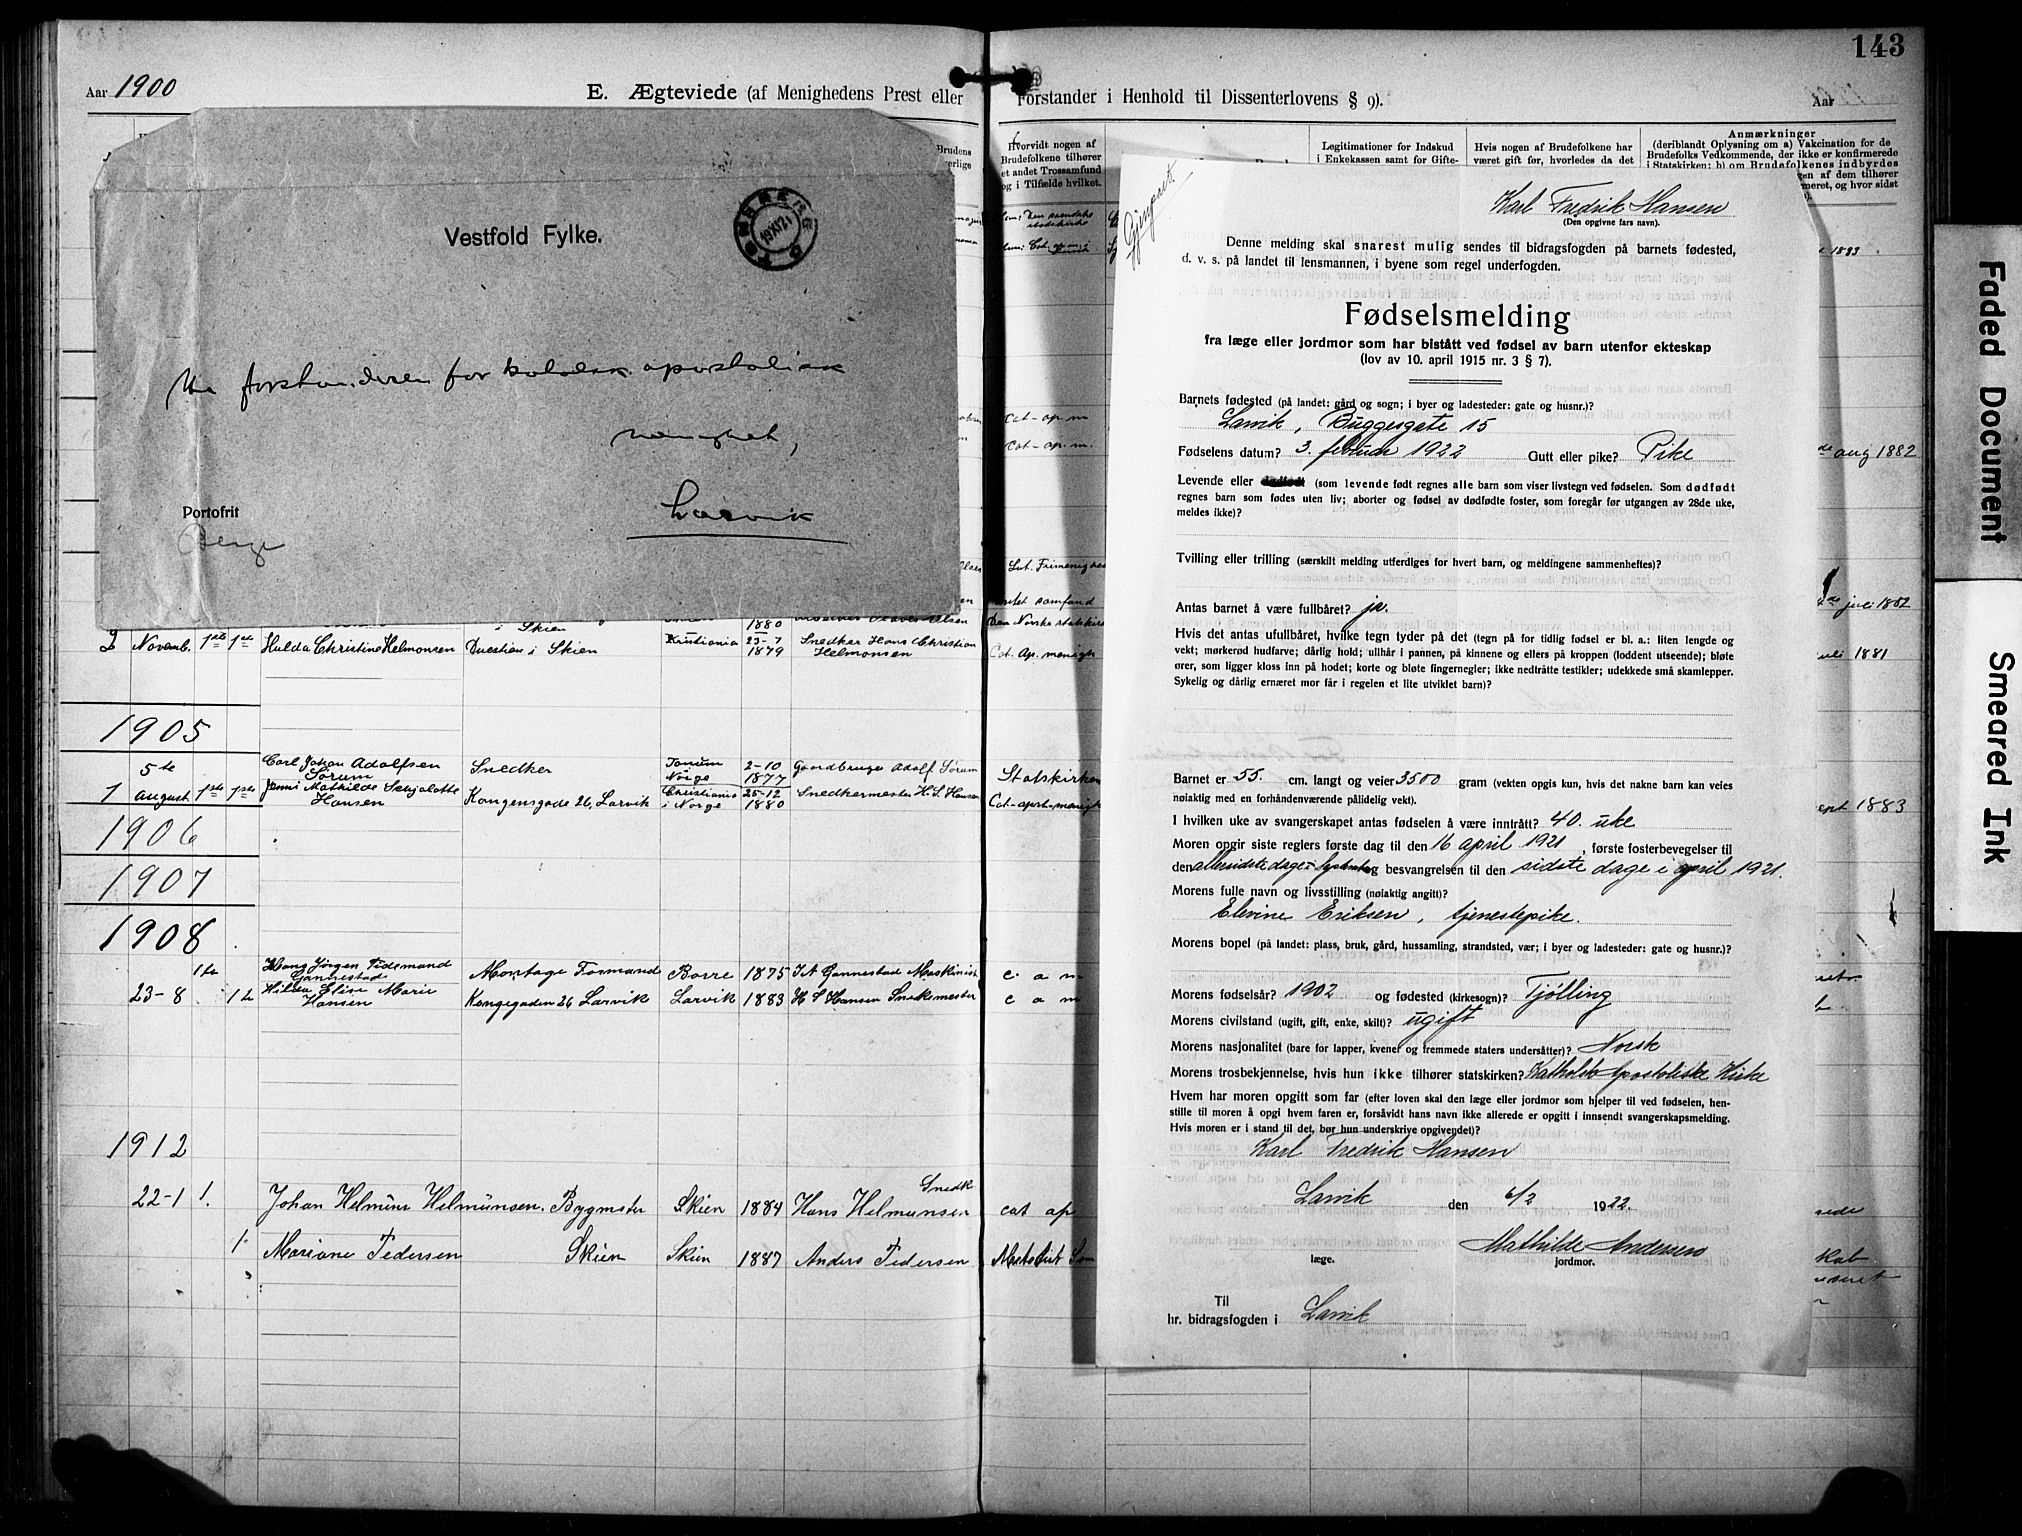 143
Aar 1900
E. Ægteviede (af Menighedens Prest eller
Forstander i Henhold til Dissenterlovens § 9).
Aar
Brudens
Hvorvidt nogen af
Brudefolkene tilhører
et andet Trossamfund
og i Tilfælde hvilket.
Legitimationer for Indskud
i Enkekassen samt for Gifte-
Hvis nogen af Brudefolkene har
været gift før, hvorledes da det
Anmærkninger
(deriblandt Oplysning om a) Vakcination for de
Brudefolks Vedkommende, der ikke er konfirmerede
i Statskirken; b) om Brudefolkenes indbyrdes
Vestfold Fylke.
forstanderen for katolsk apostolisk
menighet,
Larvik
Portofrit
Berge
Cat-ap. m
Cat-ap. m.
Lut. Frimenighed
i Skien
1880
2 Novemb. 1ste 1ste Hulda Christine Helmonsen Duestien i Skien Kristiania 23-7 1879 Snedker Hans Christian Helmonsen Cat. Ap. menigh
1905
5te Carl Johan Adolfsen Sørum Snedker Tanum Norge 2-10 1877 Gaardbruger Adolf Sørum Statskirken
1 August 1ste 1ste Jenni Mathilde Scharlotte Hansen Kongensgade 26, Larvik Christiania i Norge 25-12 1880 Snedkermester H. S. Hansen Cat-apst-menigh
1906
1907
1908
1ste Hans Jørgen Tidemand Gannestad Montage Formand Borre 1875 J A Gannestad Maskinist c. a m
23-8 1te Hilda Elise Marie Hansen Kongegaden 26 Larvik Larvik 1883 H S Hansen Snekmester c a m
1912
22-1 1. Johan Helmūns Helmūnsen. Bygmster Skien 1884 Hans Helmunsen Snedk cat ap
1. Mariane Pedersen Skien Skien 1887 Anders Pedersen
1883
aug 1882
juli 1882
1881
1883
Karl Fredrik Hansen
(Den opgivne fars navn).
Denne melding skal snarest mulig sendes til bidragsfogden på barnets fødested,
d. v. s. på landet til lensmannen, i byene som regel underfogden.
Fødselsmelding
fra læge eller jordmor som har bistått ved fødsel av barn utenfor ekteskap
(lov av 10. april 1915 nr. 3 § 7).
Barnets fødested (på landet: gård og sogn; i byer og ladesteder: gate og husnr.)?
Larvik, Buggesgate 15
Fødselens datum? 3. februar 1922 Gutt eller pike? Pike
Levende eller dødfødt (som levende født regnes alle barn som viser livstegn ved fødselen. Som dødfødt
regnes barn som fødes uten liv; aborter og fødsel av dødfødte foster, som foregår før utgangen av 28de uke,
meldes ikke)?
Tvilling eller trilling (særskilt melding utferdiges for hvert barn, og meldingene sammenheftes)?
Antas barnet å være fullbåret? ja.
Hvis det antas ufullbåret, hvilke tegn tyder på det (tegn på for tidlig fødsel er bl. a.: liten lengde og
vekt; mørkerød hudfarve; dårlig hold; ullhår i pannen, på kinnene og ellers på kroppen (loddent utseende); bløte
ører, som ligger kloss inn på hodet; korte og bløte fingernegler; ikke nedtråtte testikler; udekkede små skamlepper.
Sykelig og dårlig ernæret mor får i regelen et lite utviklet barn)?
Barnet er 55. cm. langt og veier 3500 gram (vekten opgis kun, hvis det nakne barn kan veies
nøiaktig med en forhåndenværende pålidelig vekt).
I hvilken uke av svangerskapet antas fødselen å være inntrått? 40. uke
Moren opgir siste reglers første dag til den 16 april 1921, første fosterbevegelser til
den og besvangrelsen til den sidste dage i april 1921.
Morens fulle navn og livsstilling (nøiaktig angitt)?
Elevine Eriksen, tjenestepike.
Morens bopel (på landet: plass, bruk, gård, hussamling, strandsted, vær; i byer og ladesteder: gate og husnr.)?
Morens fødselsår? 1902 og fødested (kirkesogn)? Tjølling
Morens civilstand (ugift, gift, enke, skilt)? ugift
Morens nasjonalitet (bare for lapper, kvener og fremmede staters undersåtter)? Norsk
Morens trosbekjennelse, hvis hun ikke tilhører statskirken? Katholsk Apostoliske Kirke
Hvem har moren opgitt som far (efter loven skal den læge eller jordmor som hjelper til ved fødselen, hen-
stille til moren å opgi hvem faren er, forsåvidt hans navn ikke allerede er opgitt i innsendt svangerskapsmelding.
Hvis moren er i stand til det, bør hun underskrive opgivendet)?
Karl Fredrik Hansen
Larvik den 6/2 1922.
Mathilde Andersen
læge. jordmor.
Til
hr. bidragsfogden i Larvik
Faded Document
Smeared Ink